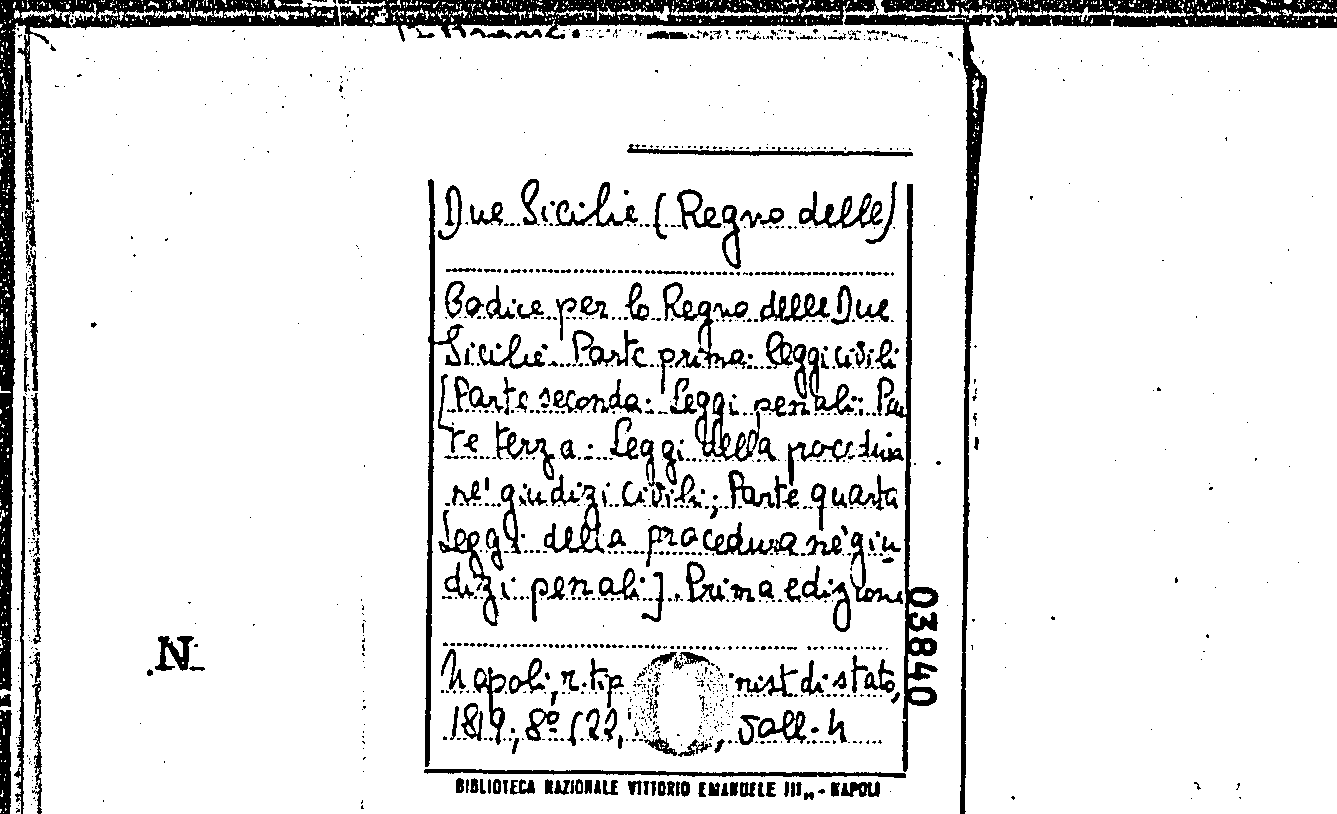 Due Sicilie (Regno delle)
Codice per lo Regno delle Due
Sicilie. Parte prima. Leggi civili
[Parte seconda. Leggi penali; Par
te terza. Leggi della procedura
ne' giudizi civili; Parte quarta
Leggi della procedura ne' giu
dizi penali]. Prima edizione
03840
N
Napoli, r. tip nist di stato,
1819; 8º (22,
BIBLIOTECA NAZIONALE VITTORIO EMANUELE III„ - NAPOLI